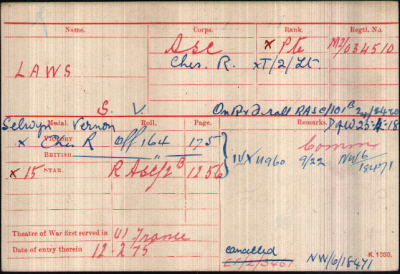 Name. Corps. Rank. Regtl. No.
ASC x Pte M2/034510
LAWS Ches. R. xT/2/Lt.
S. V.
Selwyn Vernon
Medal. Roll. Page. Remarks. DofW 25-4-18
VICTORY x Ches R Off 164 175
BRITISH
x 15 STAR. R ASC/2B 1256
IV/X 11960 9/22 NW/6/18471
Theatre of War first served in (1) France
Date of entry therein 12.2.15
cancelled
K. 1380.
NW/6/18471